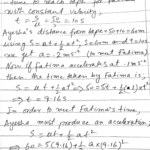 time to reach tape for Fatima
with constant velocity.
t = S/v = 50/5 = 10s
Ayesha's distance from tape=50+10=60m
using S=ut+½at², S=60m and t=10s
we get a = 2ms⁻² (to meet Fatima)
Now if Fatima accelerates at 1ms⁻²
then the time taken by Fatima is,
S = ut+½at² ⇒ 50=5t+½(1)t²
⇒ t = 9.16s
In order to meet Fatima's time,
Ayesha must produce an acceleration;
S = ut+½at²
⇒ 60=5(9.16)+½a×(9.16)²